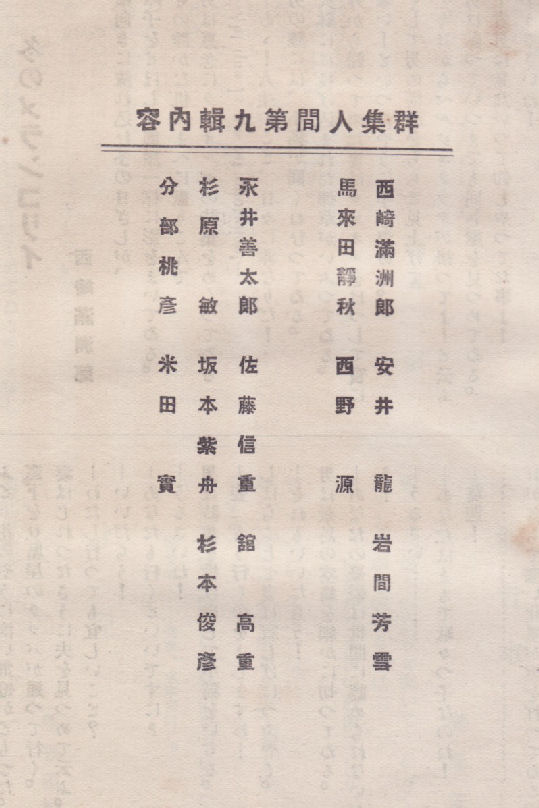 群集人間第九輯內容
西﨑滿洲郎 安井 龍 岩間芳雲
馬來田靜秋 西野 源
永井善太郎 佐藤信重 舘 高重
杉原 敏 坂本紫舟 杉本俊彥
分部桃彥 米田 實